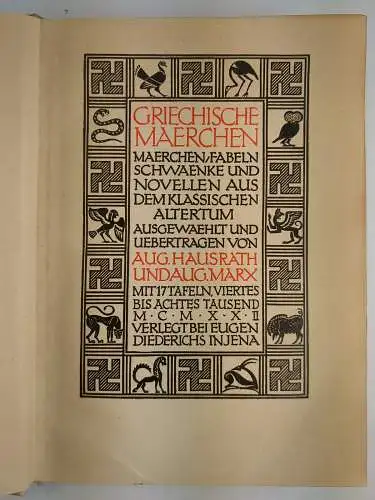 GRIECHISCHE
MAERCHEN
MAERCHEN, FABELN
SCHWAENKE UND
NOVELLEN AUS
DEM KLASSISCHEN
ALTERTUM
AUSGEWAEHLT UND
UEBERTRAGEN VON
AUG. HAUSRATH
UND AUG. MARX
MIT 17 TAFELN, VIERTES
BIS ACHTES TAUSEND
M·C·M·X·X·II
VERLEGT BEI EUGEN
DIEDERICHS IN JENA